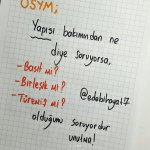 ÖSYM;
Yapısı bakımından ne
diye soruyorsa,
-Basit mi?
-Birleşik mi?
-Türemiş mi?
@edebihayat7
olduğunu soruyordur
unutma!